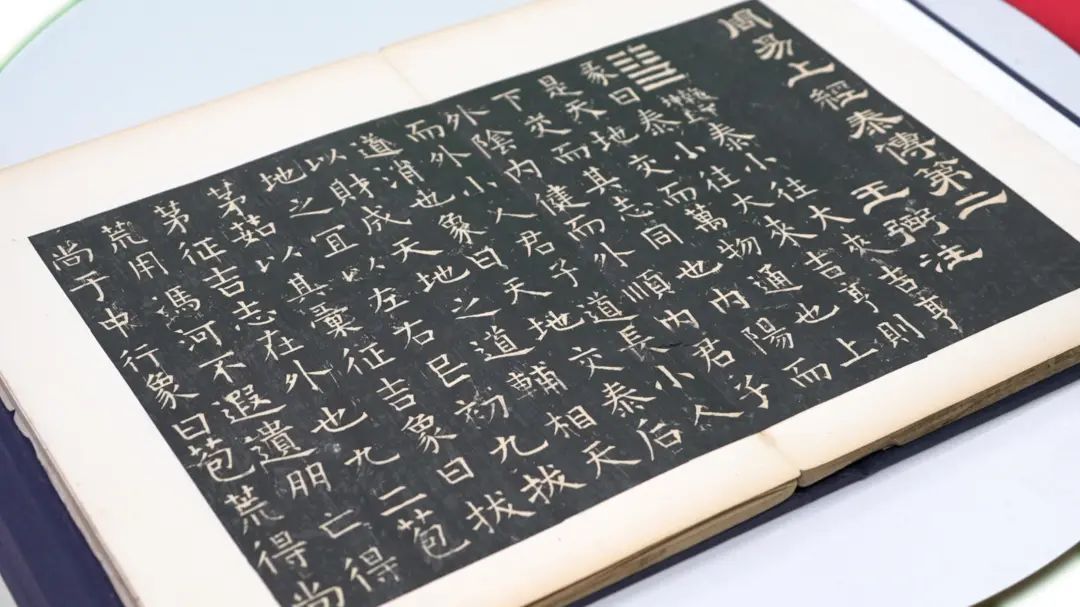 周易上經泰傳第二
王弼注
乾下坤上泰小往大來吉亨
彖曰泰小往大來吉亨則
是天地交而萬物通也上
下交而其志同也内陽而
外陰内健而外順内君子
而外小人君子道長小人
道消也象曰天地交泰后
以財成天地之道輔相天
地之宜以左右民初九拔
茅茹以其彙征吉象曰拔
茅征吉志在外也九二苞
荒用馮河不遐遺朋亡得
尚于中行象曰苞荒得尚